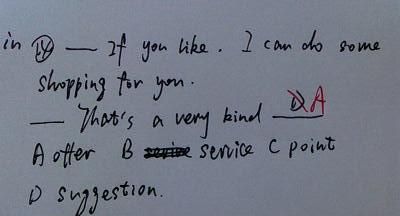 — If you like. I can do some
shopping for you.
— That's a very kind A
A offer B service C point
D suggestion.